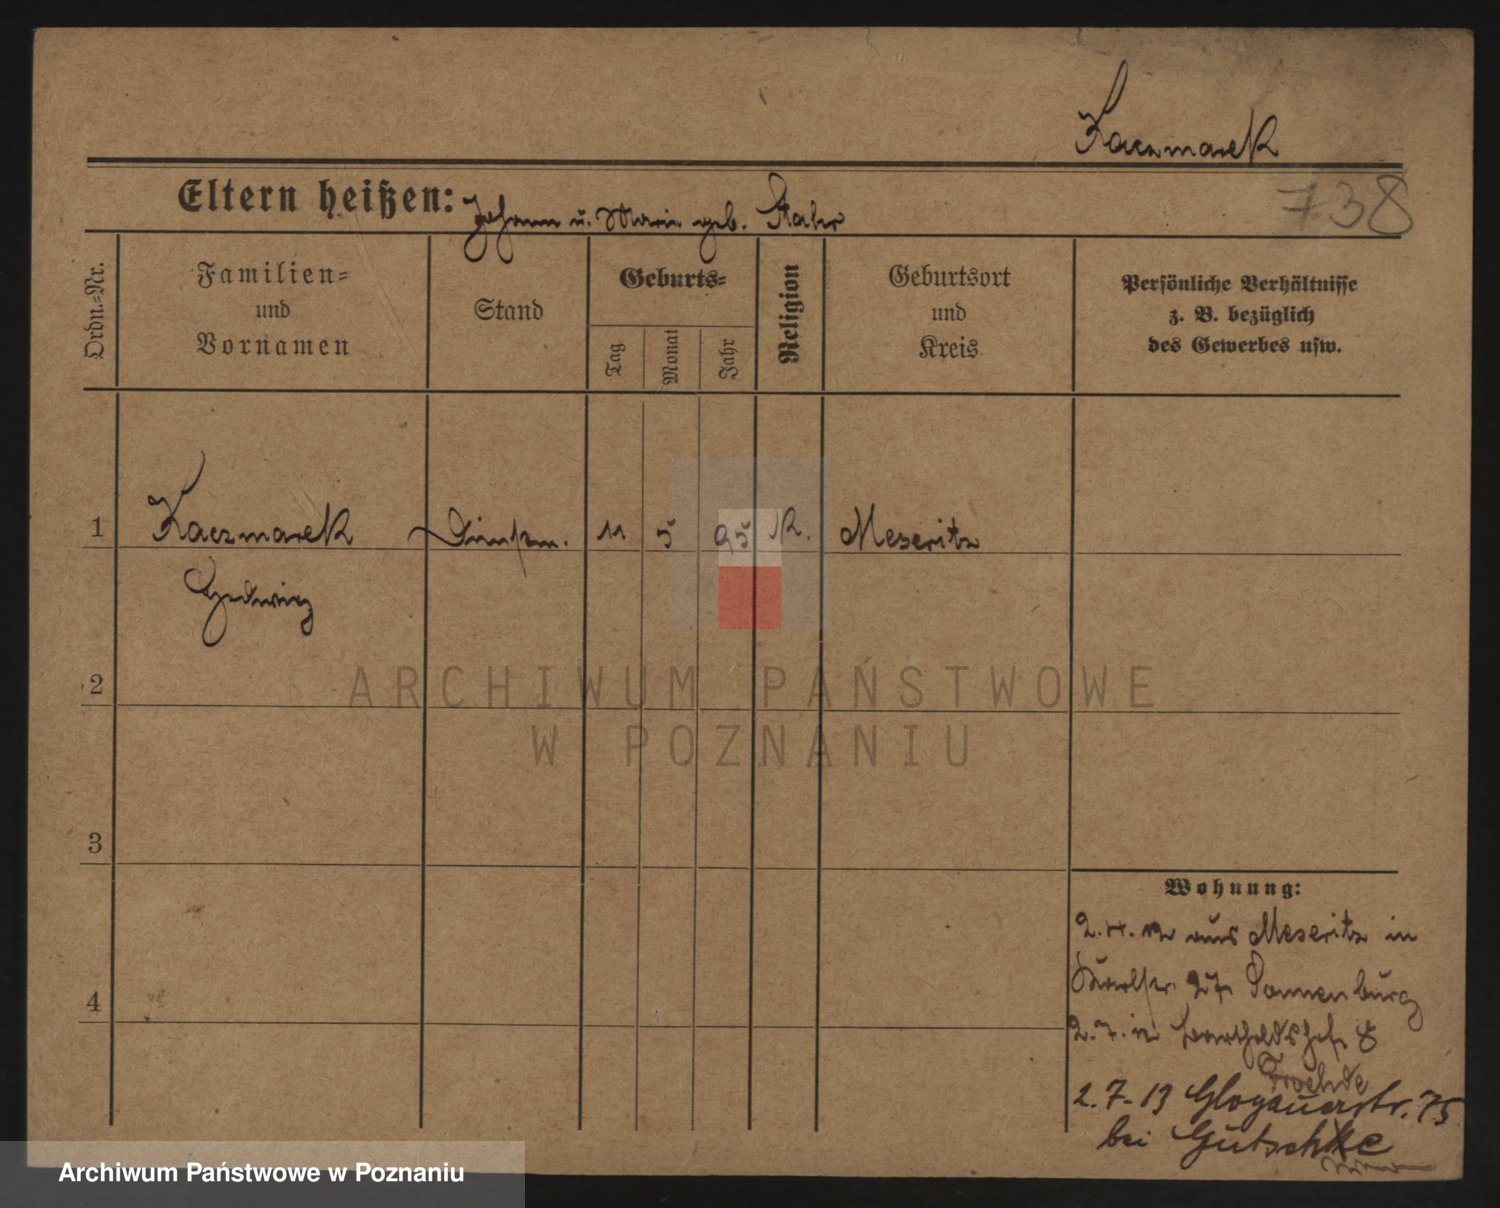 Kaczmarek
738
Eltern heißen: Johann u. Marie geb.
Ordn.=Nr.
Familien=
und
Vornamen
Stand
Geburts=
Tag
Monat
Jahr
Religion
Geburtsort
und
Kreis
Persönliche Verhältnisse
z. B. bezüglich
des Gewerbes usw.
1 Kaczmarek 11 5 95 K. Meseritz
Hedwig
2
ARCHIWUM PAŃSTWOWE
W POZNANIU
3
4
Wohnung:
2.4.12 aus Meseritz in
27 Sonnenburg
8
2.7.13 Glogauerstr. 75
bei Gutschke
Archiwum Państwowe w Poznaniu